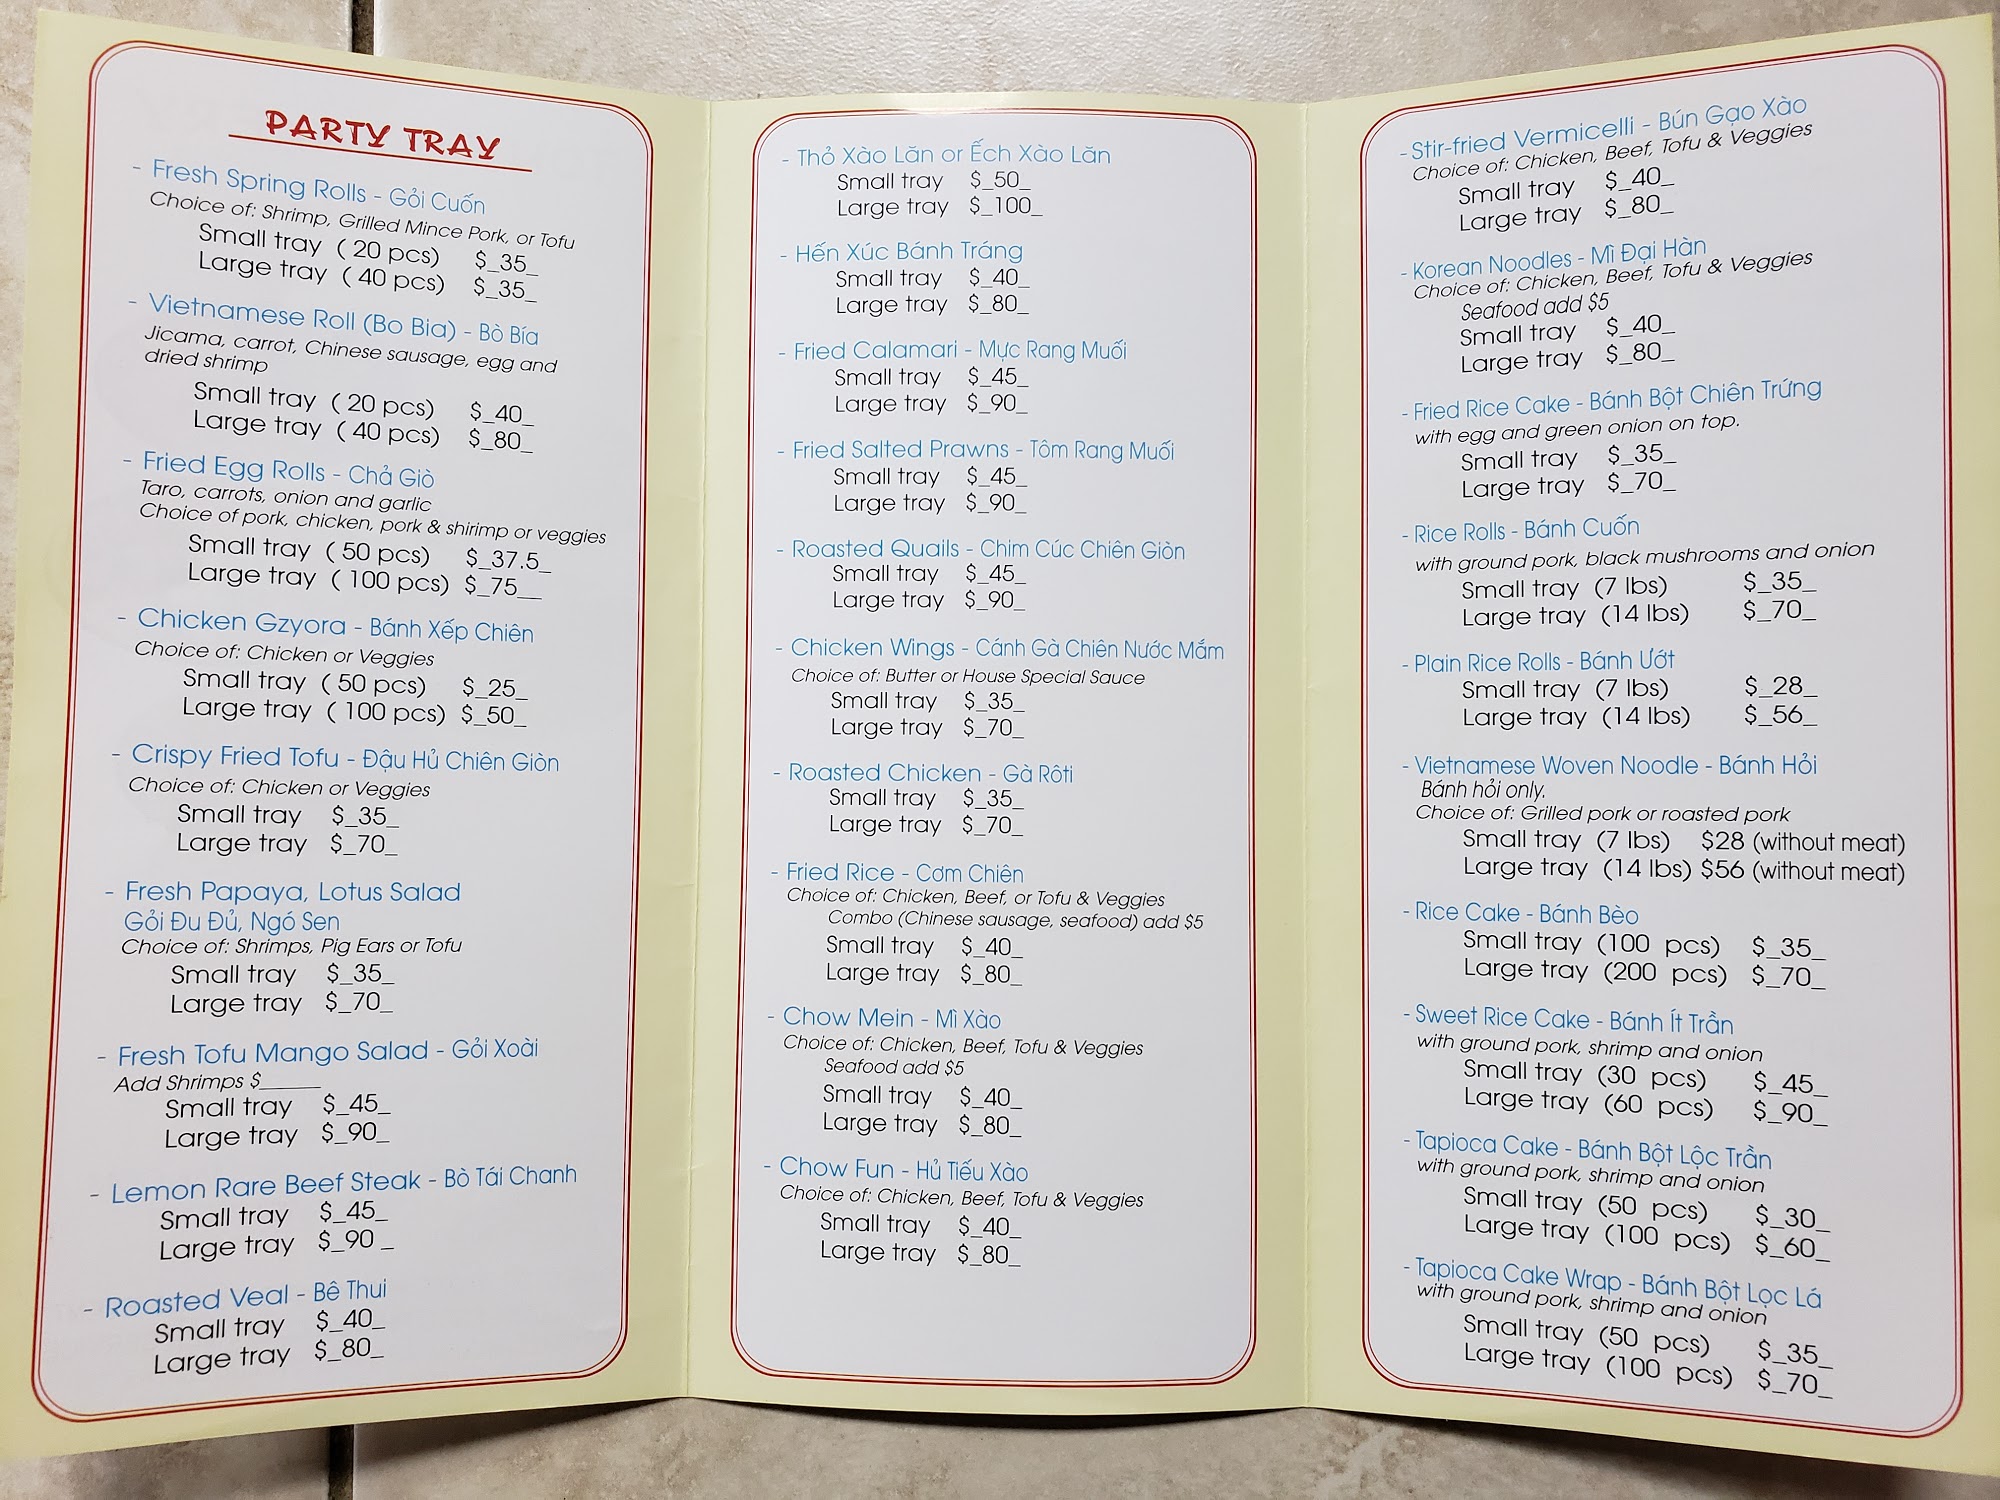 PARTY TRAY
- Fresh Spring Rolls - Gỏi Cuốn
Choice of: Shrimp, Grilled Mince Pork, or Tofu
Small tray ( 20 pcs) $_35_
Large tray ( 40 pcs) $_35_
- Vietnamese Roll (Bo Bia) - Bò Bía
Jicama, carrot, Chinese sausage, egg and
dried shrimp
Small tray ( 20 pcs) $_40_
Large tray ( 40 pcs) $_80_
- Fried Egg Rolls - Chả Giò
Taro, carrots, onion and garlic
Choice of pork, chicken, pork & shirimp or veggies
Small tray ( 50 pcs) $_37.5_
Large tray ( 100 pcs) $_75__
- Chicken Gzyora - Bánh Xếp Chiên
Choice of: Chicken or Veggies
Small tray ( 50 pcs) $_25_
Large tray ( 100 pcs) $_50_
- Crispy Fried Tofu - Đậu Hủ Chiên Giòn
Choice of: Chicken or Veggies
Small tray $_35_
Large tray $_70_
- Fresh Papaya, Lotus Salad
Gỏi Đu Đủ, Ngó Sen
Choice of: Shrimps, Pig Ears or Tofu
Small tray $_35_
Large tray $_70_
- Fresh Tofu Mango Salad - Gỏi Xoài
Add Shrimps $_____
Small tray $_45_
Large tray $_90_
- Lemon Rare Beef Steak - Bò Tái Chanh
Small tray $_45_
Large tray $_90 _
- Roasted Veal - Bê Thui
Small tray $_40_
Large tray $_80_
- Thỏ Xào Lăn or Ếch Xào Lăn
Small tray $_50_
Large tray $_100_
- Hến Xúc Bánh Tráng
Small tray $_40_
Large tray $_80_
- Fried Calamari - Mực Rang Muối
Small tray $_45_
Large tray $_90_
- Fried Salted Prawns - Tôm Rang Muối
Small tray $_45_
Large tray $_90_
- Roasted Quails - Chim Cúc Chiên Giòn
Small tray $_45_
Large tray $_90_
- Chicken Wings - Cánh Gà Chiên Nước Mắm
Choice of: Butter or House Special Sauce
Small tray $_35_
Large tray $_70_
- Roasted Chicken - Gà Rôti
Small tray $_35_
Large tray $_70_
- Fried Rice - Cơm Chiên
Choice of: Chicken, Beef, or Tofu & Veggies
Combo (Chinese sausage, seafood) add $5
Small tray $_40_
Large tray $_80_
- Chow Mein - Mì Xào
Choice of: Chicken, Beef, Tofu & Veggies
Seafood add $5
Small tray $_40_
Large tray $_80_
- Chow Fun - Hủ Tiếu Xào
Choice of: Chicken, Beef, Tofu & Veggies
Small tray $_40_
Large tray $_80_
- Stir-fried Vermicelli - Bún Gạo Xào
Choice of: Chicken, Beef, Tofu & Veggies
Small tray $_40_
Large tray $_80_
- Korean Noodles - Mì Đại Hàn
Choice of: Chicken, Beef, Tofu & Veggies
Seafood add $5
Small tray $_40_
Large tray $_80_
- Fried Rice Cake - Bánh Bột Chiên Trứng
with egg and green onion on top.
Small tray $_35_
Large tray $_70_
- Rice Rolls - Bánh Cuốn
with ground pork, black mushrooms and onion
Small tray (7 lbs) $_35_
Large tray (14 lbs) $_70_
- Plain Rice Rolls - Bánh Ướt
Small tray (7 lbs) $_28_
Large tray (14 lbs) $_56_
- Vietnamese Woven Noodle - Bánh Hỏi
Bánh hỏi only.
Choice of: Grilled pork or roasted pork
Small tray (7 lbs) $28 (without meat)
Large tray (14 lbs) $56 (without meat)
- Rice Cake - Bánh Bèo
Small tray (100 pcs) $_35_
Large tray (200 pcs) $_70_
- Sweet Rice Cake - Bánh Ít Trần
with ground pork, shrimp and onion
Small tray (30 pcs) $_45_
Large tray (60 pcs) $_90_
- Tapioca Cake - Bánh Bột Lộc Trần
with ground pork, shrimp and onion
Small tray (50 pcs) $_30_
Large tray (100 pcs) $_60_
- Tapioca Cake Wrap - Bánh Bột Lọc Lá
with ground pork, shrimp and onion
Small tray (50 pcs) $_35_
Large tray (100 pcs) $_70_